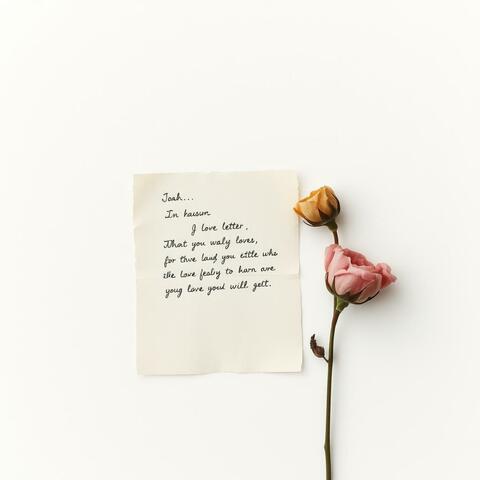 Joah...
In kaisun
I love letter,
What you waly loves,
for thve laud you estle whs
the love fesby to harn are
youg love youd will gelt.